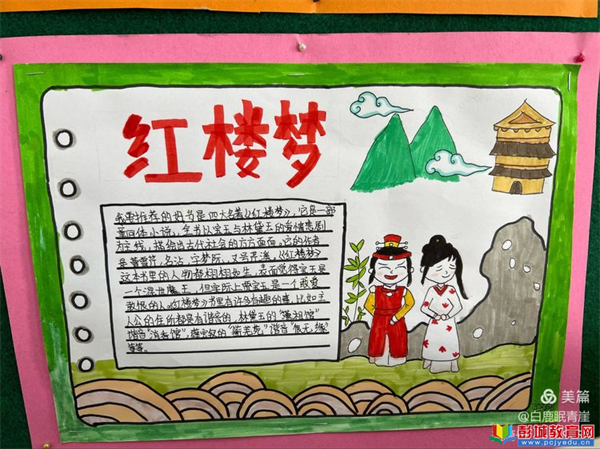 红楼梦
我要推荐的好书是四大名著《红楼梦》,它是一部
章回体小说,全书以宝玉与林黛玉的爱情悲剧
为主线,描绘出古代社会的方方面面,它的作者
是曹雪芹,名沾,字梦阮,又号芹溪,《红楼梦》
这本书里的人物都栩栩如生,表面觉得宝玉是
一个混世魔王,但实际上贾宝玉是一个敢爱
敢恨的人《红楼梦》书里有许多有趣的事,比如主
人公的住所都是有谐意的,林黛玉的"潇湘馆"
谐音"消香馆",薛宝钗的"蘅芜苑"谐音"恨无缘"
等等。
美篇
@白鹿眠青崖
彭城教育网
www.pcjyedu.cn